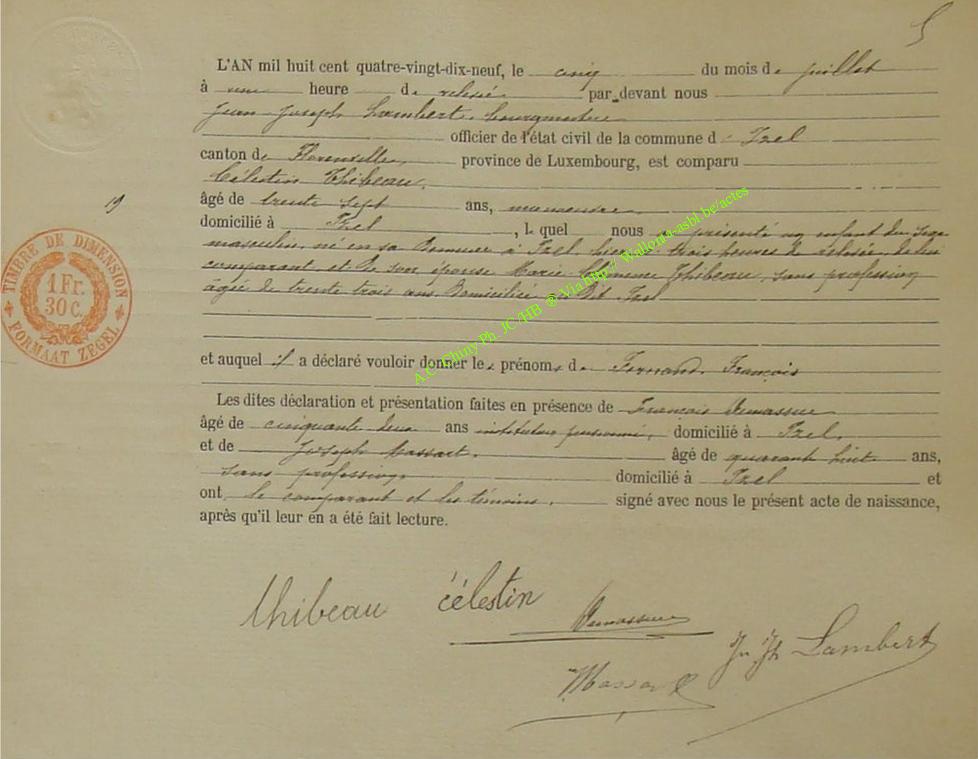 5
L'AN mil huit cent quatre-vingt-dix-neuf, le cinq du mois de juillet
à une heure de relevée par devant nous
Jean Joseph Lambert, bourgmestre
officier de l'état civil de la commune d' Izel
canton de Florenville, province de Luxembourg, est comparu
Célestin Thibeau,
19
âgé de trente sept ans, manoeuvre,
domicilié à Izel, lequel nous a présenté un enfant du sexe
masculin, né en sa demeure à Izel, hier à trois heures de relevée, de lui
comparant, et de son épouse Marie Thibeau, sans profession
âgée de trente trois ans, domiciliée à dit Izel
et auquel il a déclaré vouloir donner les prénoms de Fernand, François
Les dites déclaration et présentation faites en présence de François Demassue
âgé de cinquante deux ans instituteur pensionné, domicilié à Izel,
et de Joseph Massart, âgé de quarante huit ans,
sans profession, domicilié à Izel et
ont, le comparant et les témoins, signé avec nous le présent acte de naissance,
après qu'il leur en a été fait lecture.
TIMBRE DE DIMENSION
1 Fr.
30 C.
FORMAAT ZEGEL
A.C. Chiny Ph. JC /HB ® Via http:// Wallonia-asbl.be/actes
thibeau célestin
Demassue
Jn Jh Lambert
Massart